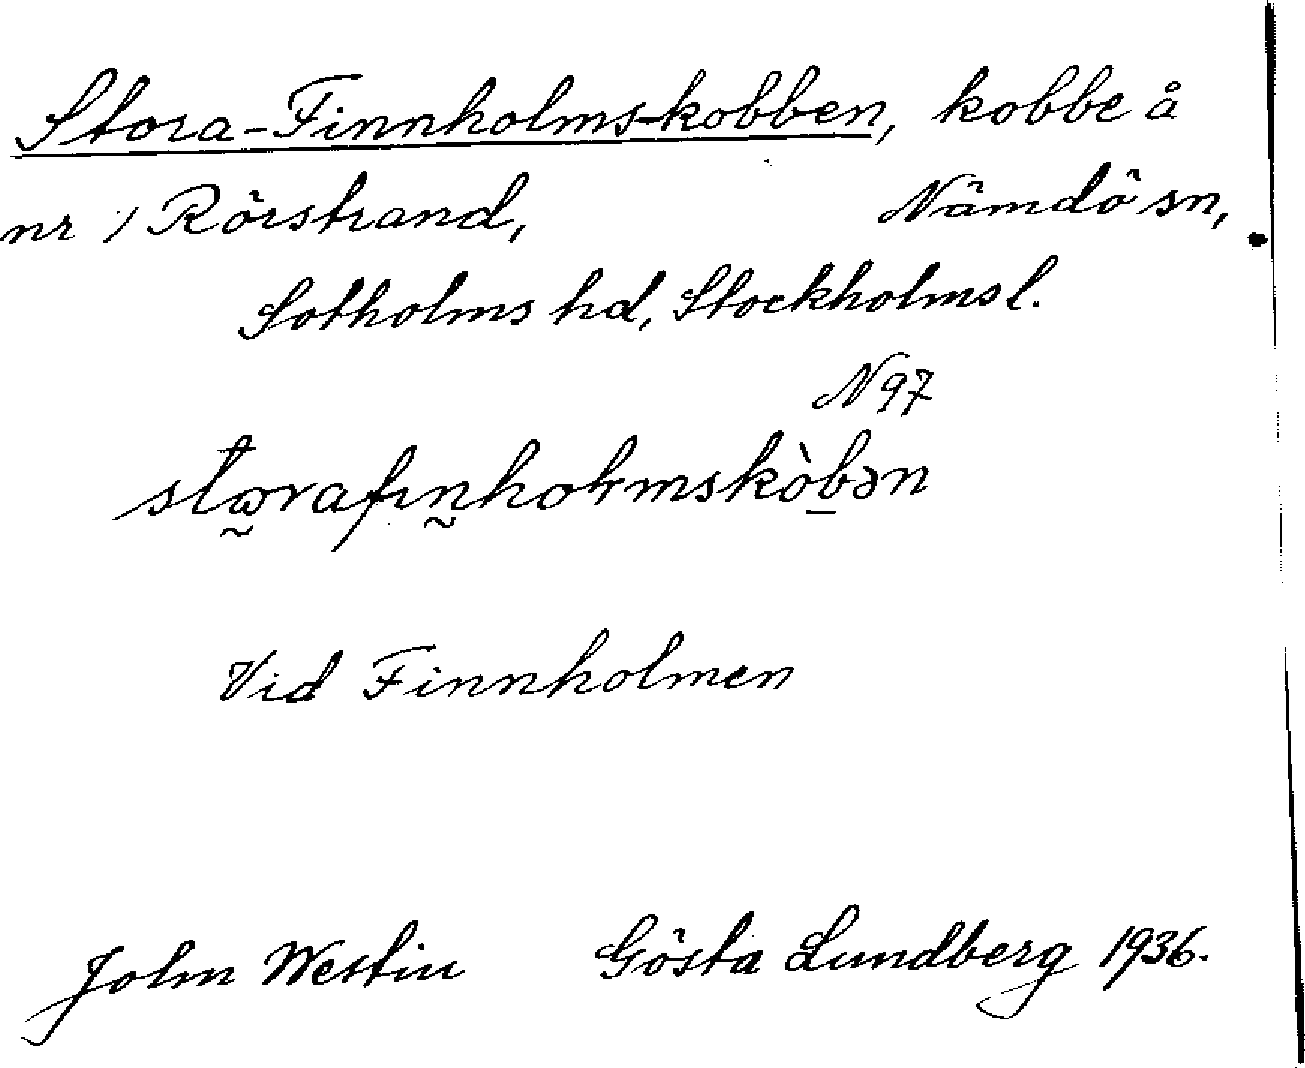 Stora-Finnholms-kobben, kobbe å
nr 1 Rörstrand, Nämdö sn,
Sotholms hd, Stockholms l.
N 97
Vid Finnholmen
John Westin Gösta Lundberg 1936.